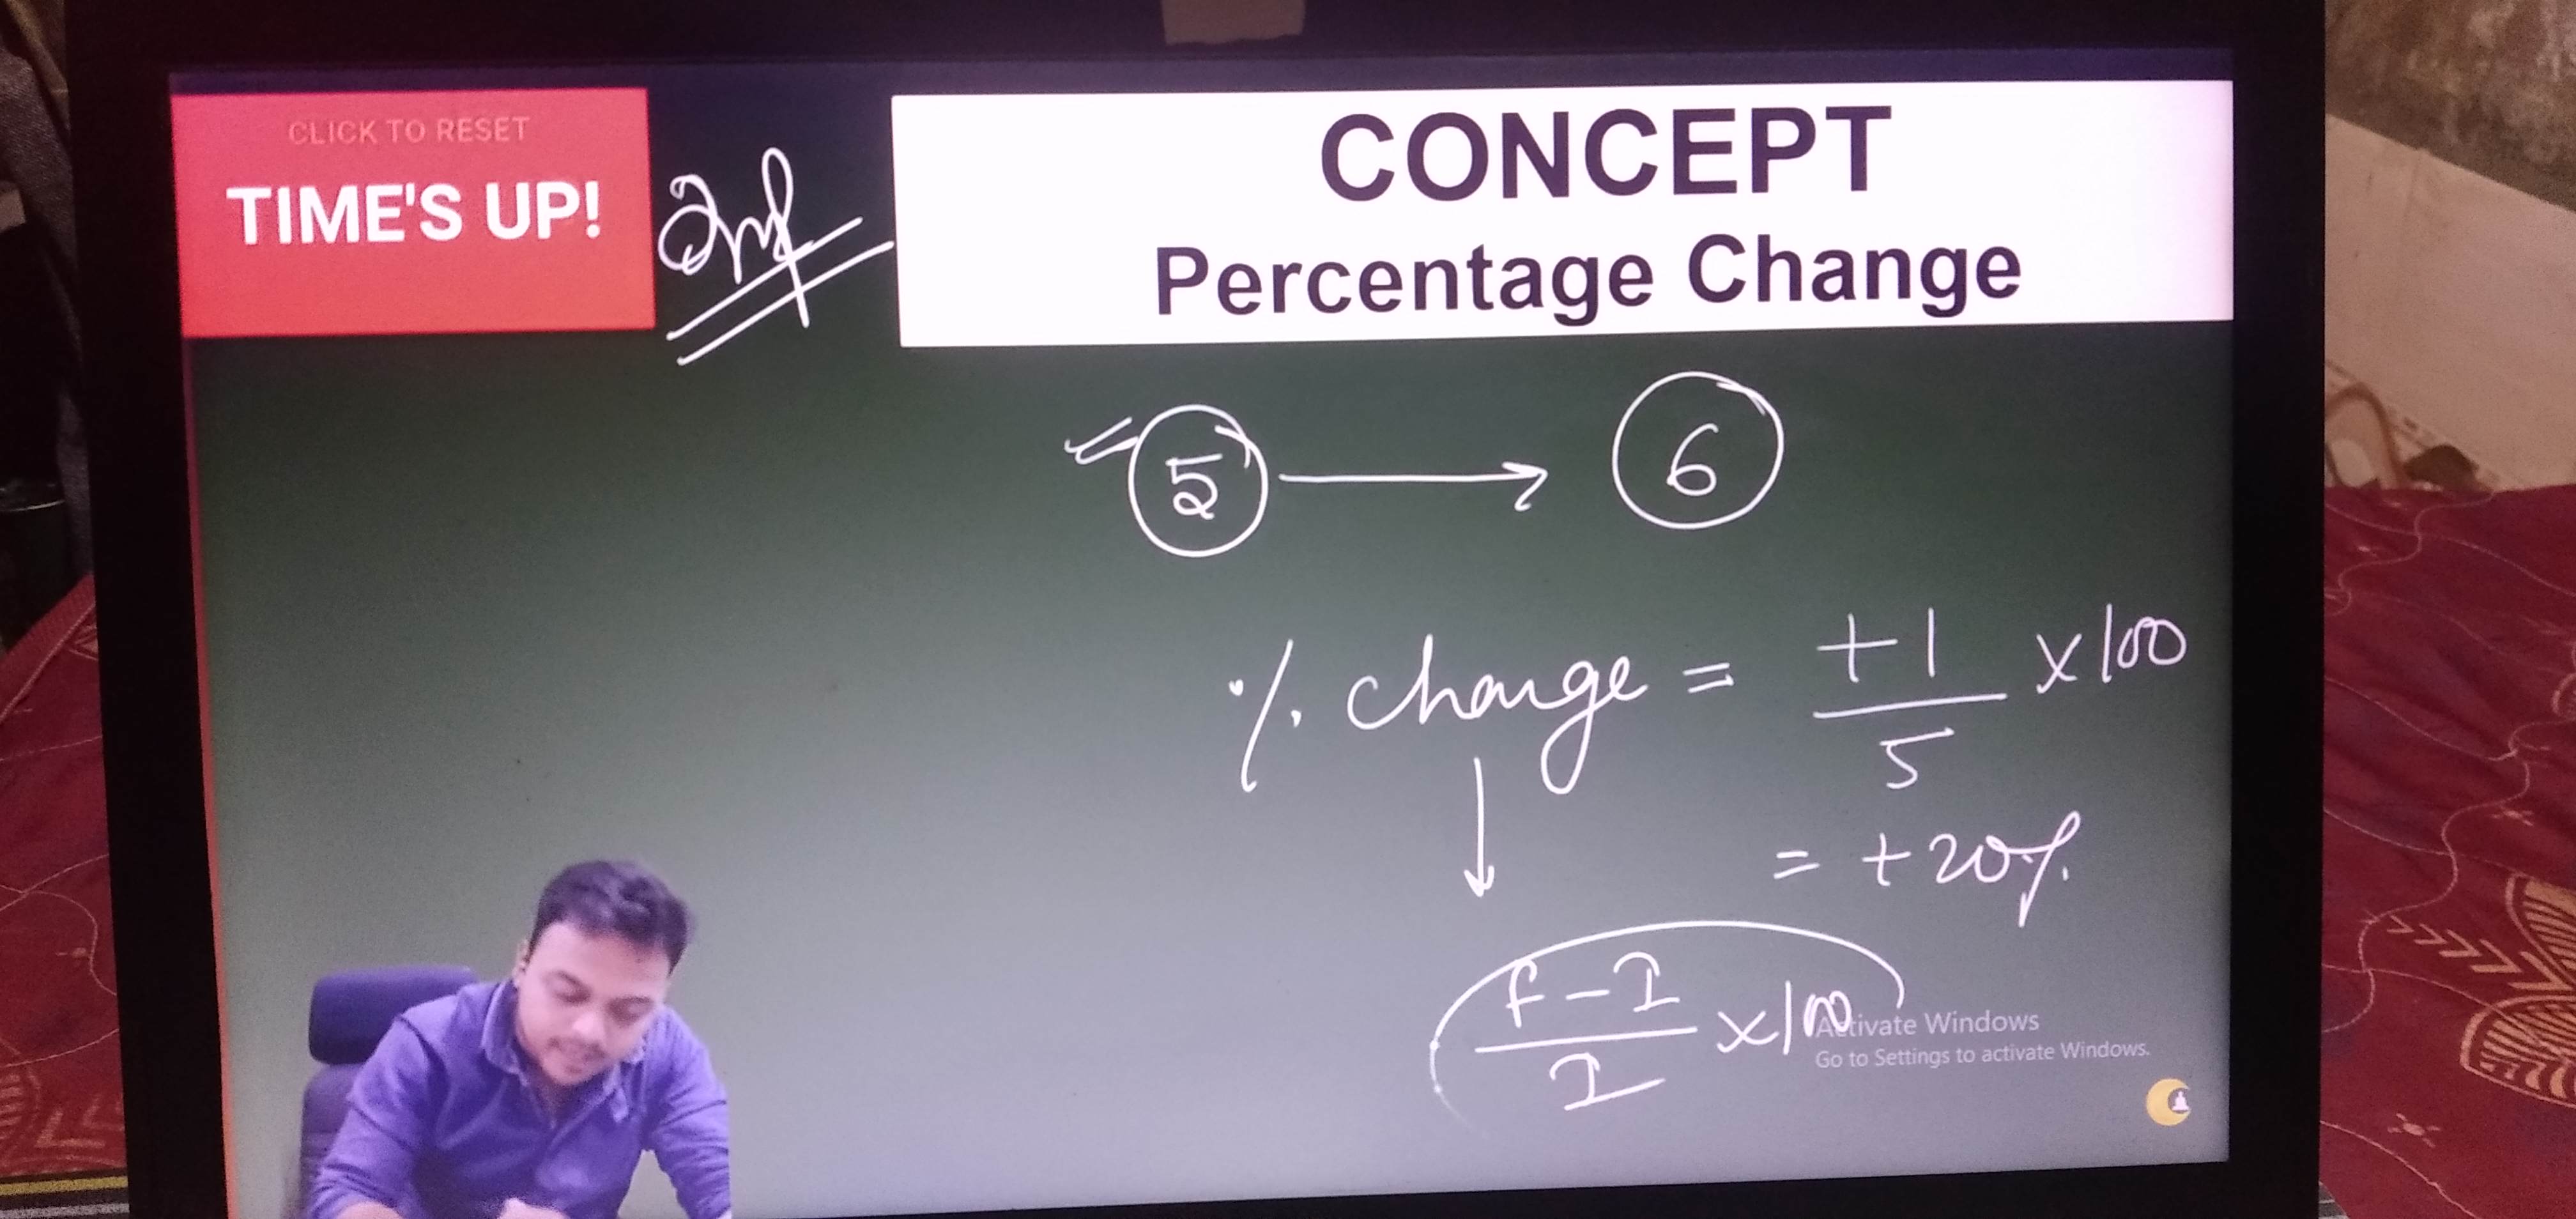 CLICK TO RESET
TIME'S UP!
Imp
CONCEPT
Percentage Change
5 → 6
% change = +1/5 x 100
= +20%
F - I / I x 100
Activate Windows
Go to Settings to activate Windows.